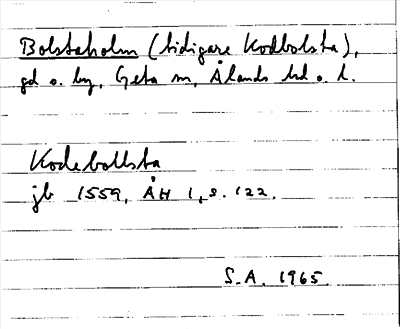 Bolstaholm (tidigare Kodbolsta),
gd o. by, Geta sn, Ålands hd o. l.
Kodebollsta
jb 1559, ÅH 1, s. 122.
S.A. 1965